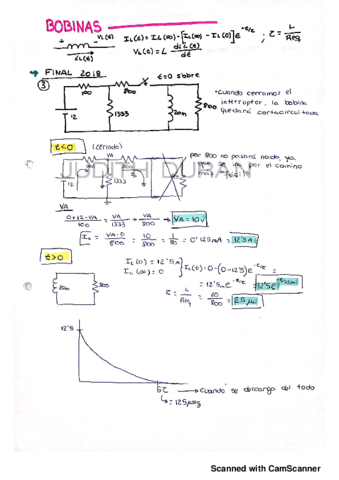 BOBINAS
+ VL(t) -
iL(t)
IL(t) = IL(∞) - [IL(∞) - IL(0)] e^-t/τ ; τ = L/Req
VL(t) = L diL(t)/dt
→ FINAL 2018
t=0 s'obre
③
100 800
12 1333 20m 800
*Cuando cerramos el
interruptor, la bobina
quedará cortocircuitada
t<0 (cerrado)
por 800 no pasará nada, ya
que se irá por el camino
más fácil
JUDITH DURAN
VA
0+12-VA/100 = VA/1333 + VA/800 → VA = 10V
IL = VA-0/800 = 10/800 = 1/80 = 0'125mA = 12'5A
t>0
20m 800
IL(0) = 12'5
IL(∞) = 0
IL(t) = 0-(0-12'5)e^-t/τ =
= 12'5 e^-t/τ = 12'5 e^-t/25μ
τ = L/Req = 20/800 = 25μ
12'5
5τ → Cuando se descarga del todo
↳ = 125μseg
Scanned with CamScanner